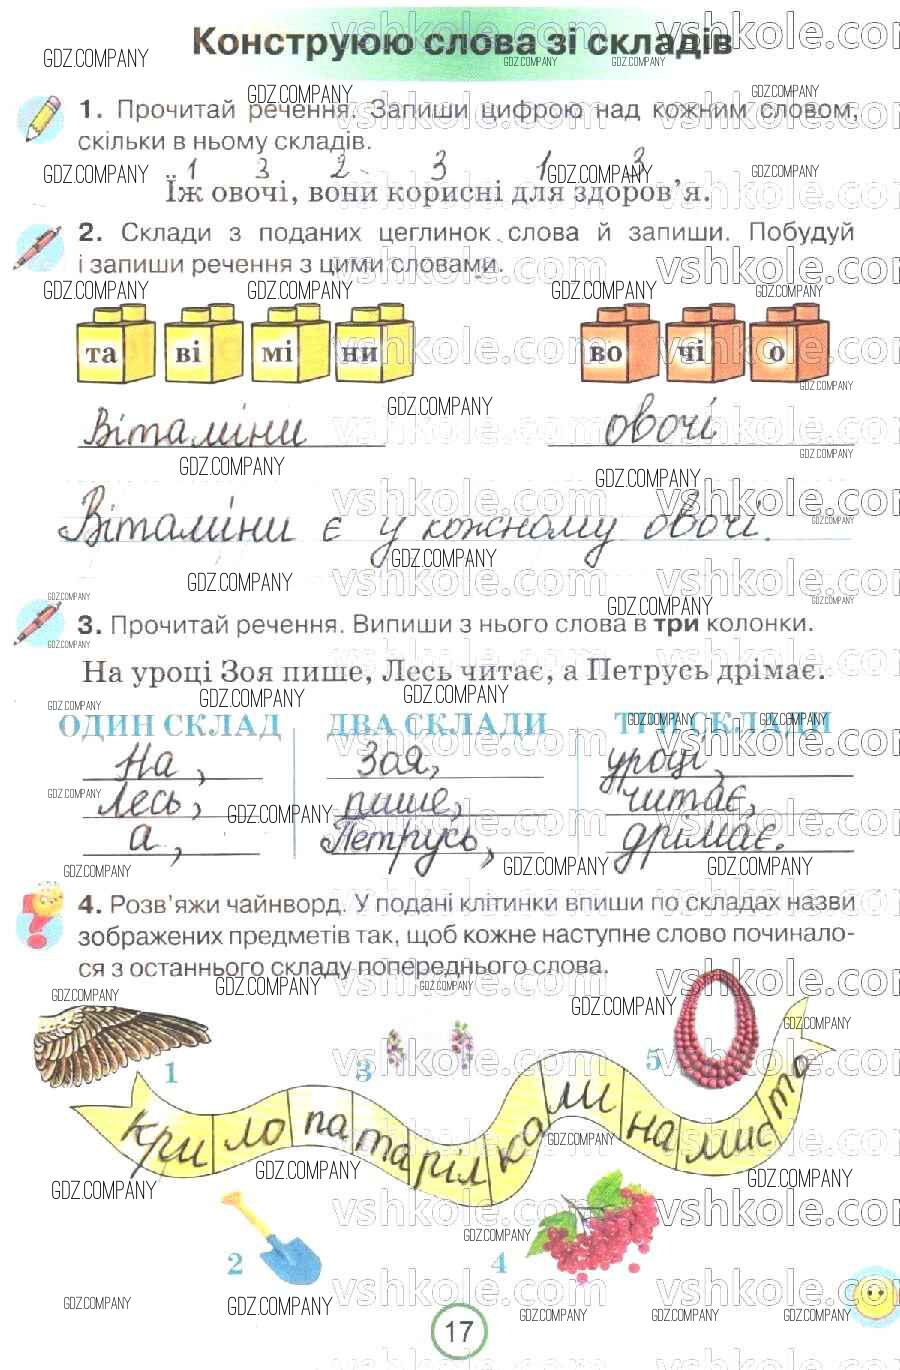 Конструюю слова зі складів
1. Прочитай речення. Запиши цифрою над кожним словом,
скільки в ньому складів.
1 3 2 3 1 3
Їж овочі, вони корисні для здоров’я.
2. Склади з поданих цеглинок слова й запиши. Побудуй
і запиши речення з цими словами.
та ві мі ни во чі о
Вітаміни овочі
Вітаміни є у кожному овочі.
3. Прочитай речення. Випиши з нього слова в три колонки.
На уроці Зоя пише, Лесь читає, а Петрусь дрімає.
ОДИН СКЛАД ДВА СКЛАДИ ТРИ СКЛАДИ
На, Зоя, уроці,
Лесь, пише, читає,
а, Петрусь, дрімає.
4. Розв’яжи чайнворд. У подані клітинки впиши по складах назви
зображених предметів так, щоб кожне наступне слово починало-
ся з останнього складу попереднього слова.
1 3 5
кри ло па та ріл ка ли на мис то
2 4
17
GDZ.COMPANY
vshkole.com